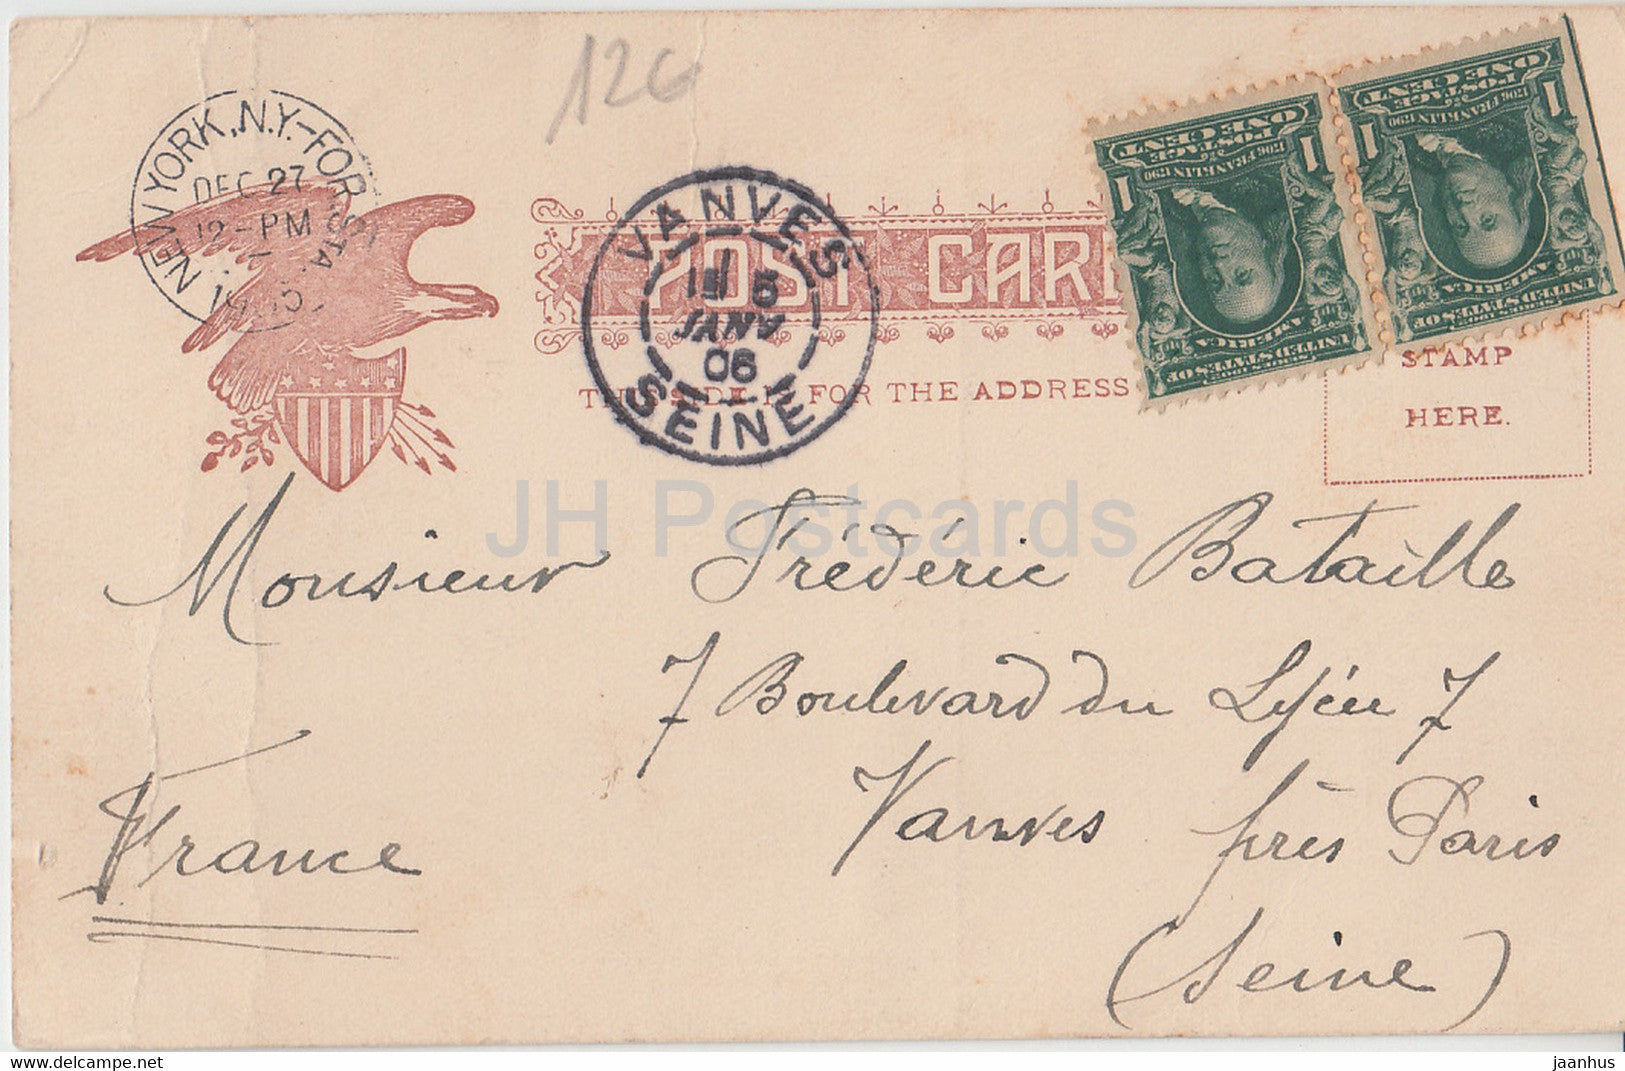 126
NEW YORK, N.Y.-FOR. STA.
DEC 27
12-PM
VANVES
15 5
JANV
06
SEINE
POST CARD
THIS SIDE IS FOR THE ADDRESS
STAMP
HERE.
1 POSTAGE 1
ONE CENT
1706 FRANKLIN 1790
SERIES 1902
UNITED STATES OF
AMERICA
1 POSTAGE 1
ONE CENT
1706 FRANKLIN 1790
SERIES 1902
UNITED STATES OF
AMERICA
JH Postcards
Monsieur Frédéric Bataille
7 Boulevard du Lycée 7
Vanves près Paris
(Seine)
France
www.delcampe.net
jaanhus